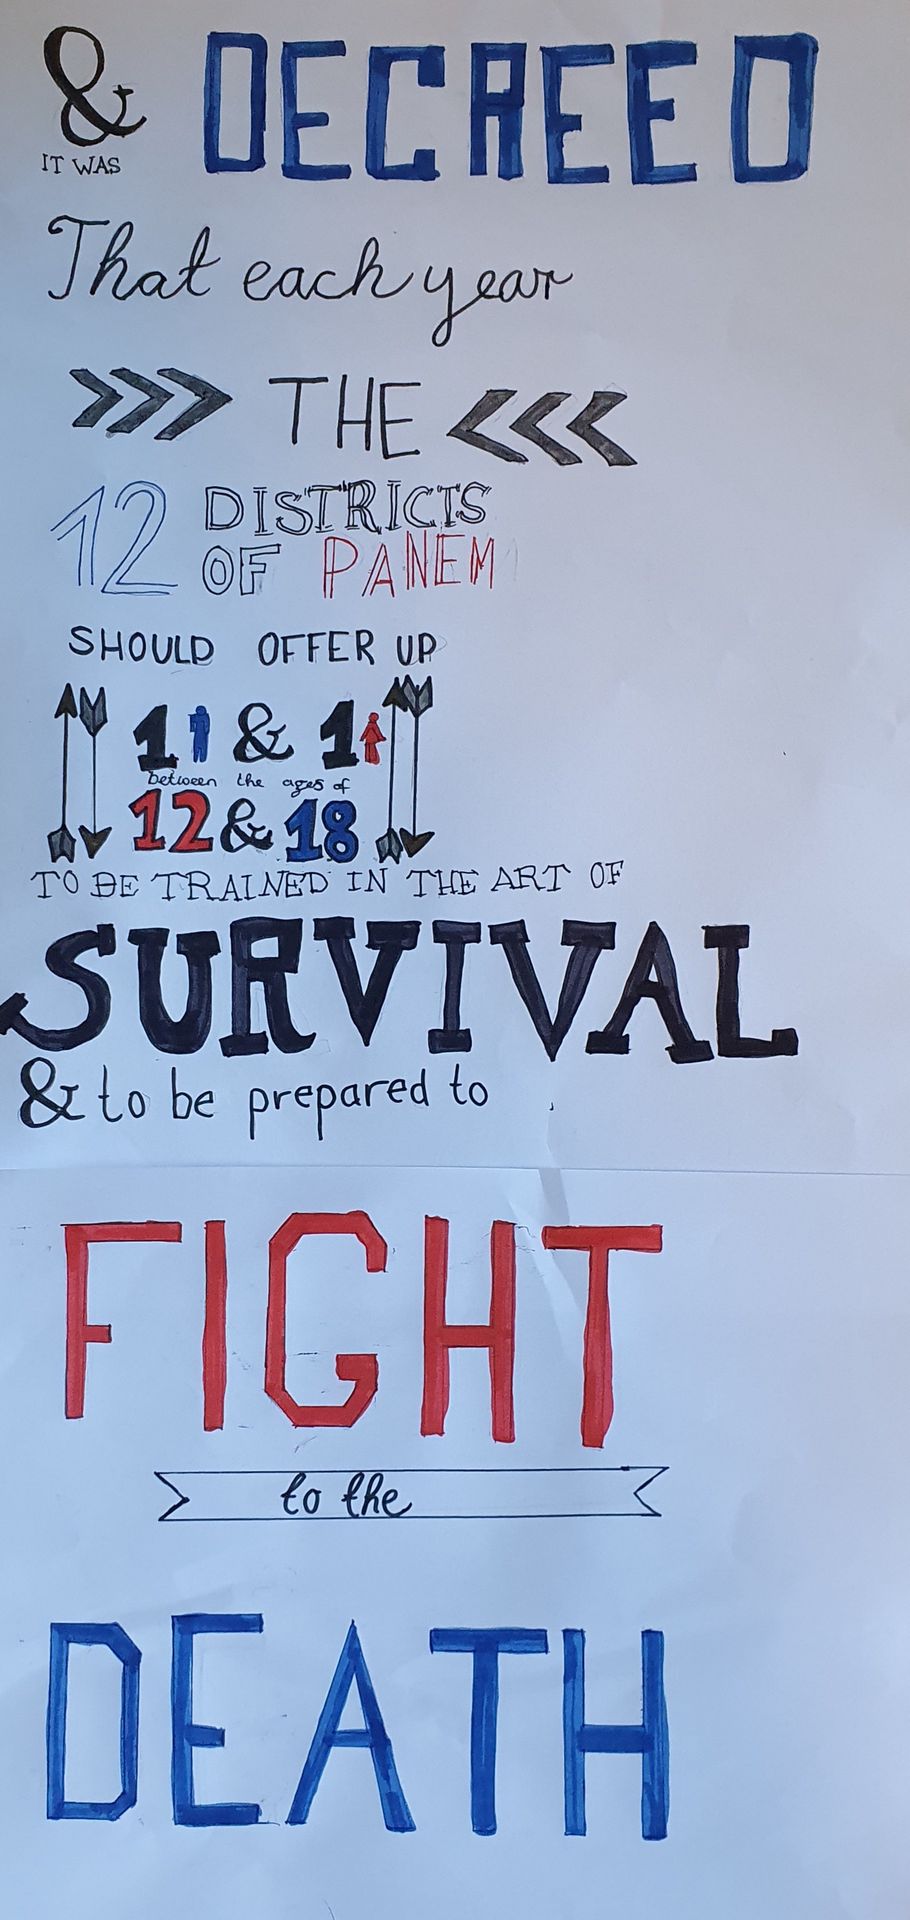 & DECREED
IT WAS
That each year
THE
12 DISTRICTS
OF PANEM
SHOULD OFFER UP
1 & 1
between the ages of
12 & 18
TO BE TRAINED IN THE ART OF
SURVIVAL
& to be prepared to
FIGHT
to the
DEATH